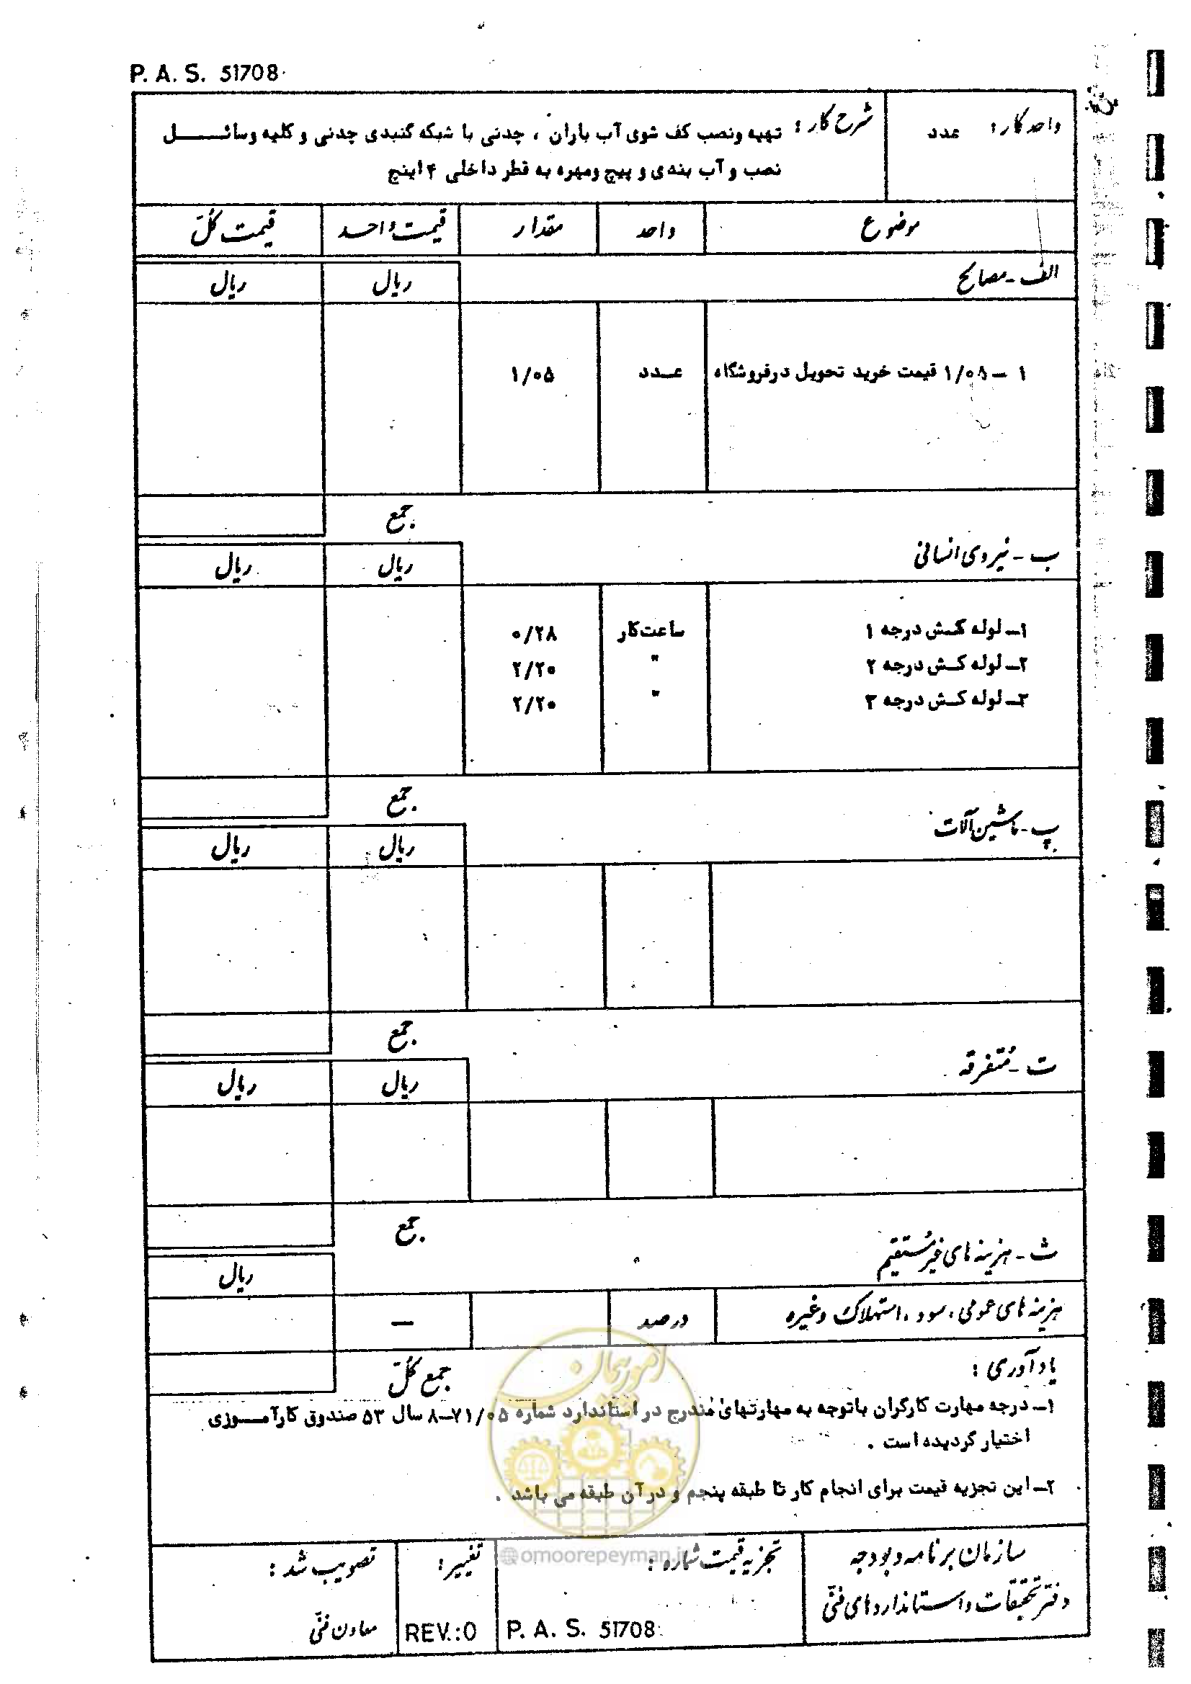 P. A. S. 51708
واحد کار : عدد
شرح کار : تهیه ونصب کف شوی آب باران ، چدنی با شبکه گنبدی چدنی و کلیه وسائل
نصب و آب بندی و پیچ ومهره به قطر داخلی ۴ اینچ
موضوع واحد مقدار قیمت واحد قیمت کل
الف - مصالح ریال ریال
۱ - ۱/۰۵ قیمت خرید تحویل درفروشگاه عدد ۱/۰۵
جمع
ب - نیروی انسانی ریال ریال
۱- لوله کش درجه ۱ ساعت کار ۰/۲۸
۲- لوله کش درجه ۲ " ۲/۲۰
۳- لوله کش درجه ۳ " ۲/۲۰
جمع
پ - ماشین آلات ریال ریال
جمع
ت - متفرقه ریال ریال
جمع
ث - هزینه های غیرمستقیم ریال
هزینه های عمومی ، سود ، استهلاک وغیره درصد —
جمع کل
یادآوری :
۱- درجه مهارت کارگران باتوجه به مهارتهای مندرج در استاندارد شماره ۷۱/۰۵-۸ سال ۵۳ صندوق کارآموزی
اختیار گردیده است .
۲- این تجزیه قیمت برای انجام کار تا طبقه پنجم و درآن طبقه می باشد .
امور پیمان
@omoorepeyman.ir
سازمان برنامه و بودجه
دفتر تحقیقات و استانداردهای فنی
تجزیه قیمت شماره :
P. A. S. 51708
تغییر :
REV.:0
تصویب شد :
معاون فنی